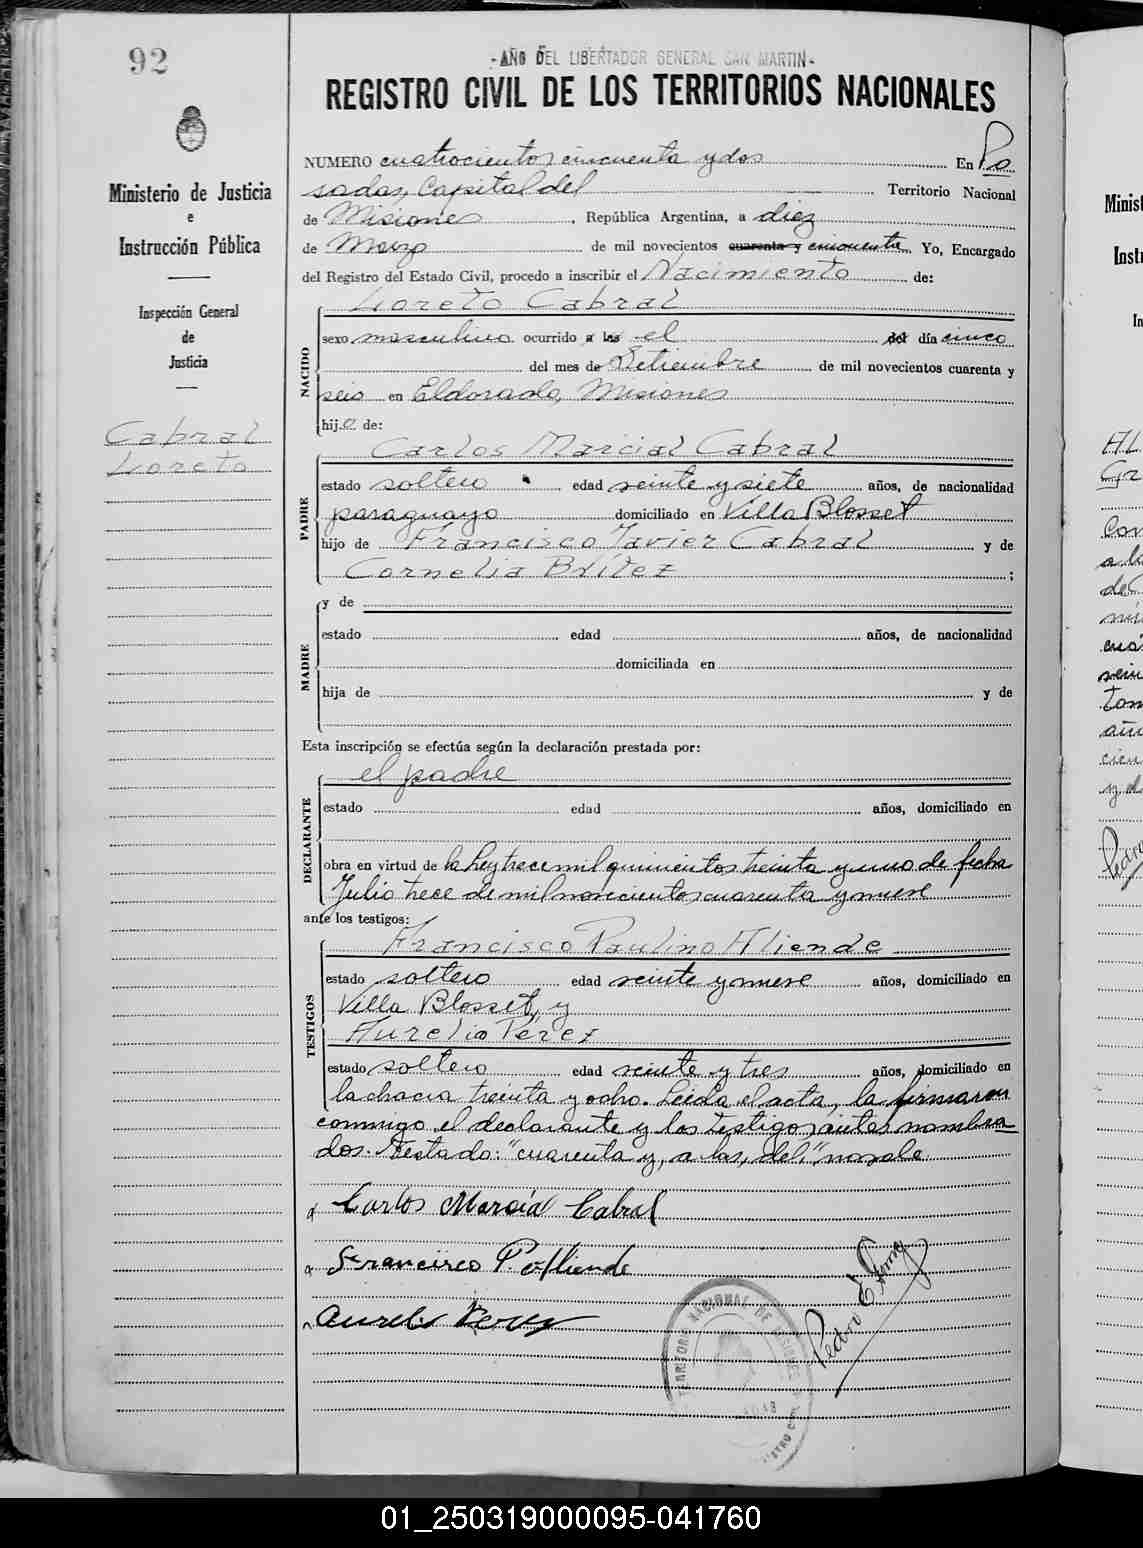 92
- AÑO DEL LIBERTADOR GENERAL SAN MARTIN -
REGISTRO CIVIL DE LOS TERRITORIOS NACIONALES
Ministerio de Justicia
e
Instrucción Pública
Inspección General
de
Justicia
Cabral
Loreto
NUMERO cuatrocientos cincuenta y dos En Po
sadas, Capital del Territorio Nacional
de Misiones, República Argentina, a diez
de Marzo de mil novecientos cuarenta y cincuenta Yo, Encargado
del Registro del Estado Civil, procedo a inscribir el Nacimiento de:
NACIDO
Loreto Cabral
sexo masculino ocurrido a las el del día cinco
del mes de Setiembre de mil novecientos cuarenta y
seis en Eldorado, Misiones
hijo de:
PADRE
Carlos Marcial Cabral
estado soltero edad veinte y siete años, de nacionalidad
paraguayo domiciliado en Villa Blosset
hijo de Francisco Javier Cabral y de
Cornelia Brítez ;
MADRE
y de
estado edad años, de nacionalidad
domiciliada en
hija de y de
Esta inscripción se efectúa según la declaración prestada por:
DECLARANTE
el padre
estado edad años, domiciliado en
obra en virtud de la Ley trece mil quinientos treinta y uno de fecha
Julio trece de mil novecientos cuarenta y nueve
ante los testigos:
TESTIGOS
Francisco Paulino Aliende
estado soltero edad veinte y nueve años, domiciliado en
Villa Blosset, y
Aurelio Pérez
estado soltero edad veinte y tres años, domiciliado en
la chacra treinta y ocho. Leida el acta, la firmaron
conmigo el declarante y los testigos antes nombra
dos. Testado: "cuarenta y, a las, del," no vale.
Carlos Marcial Cabral
Francisco P. Aliende
Aurelio Perez
Pedro E.
TERRITORIO NACIONAL DE MISIONES
01_250319000095-041760